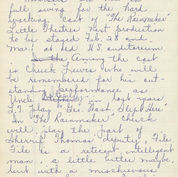 full swing for the hard
working cast of "The Rainmaker"
Little Theatre next production
to be staged Feb. 28 and
Mar. at H.S. auditorium
Among the cast
is Chuck who will
be remembered for his out-
standing performance as
Uncle in last years
L.T. play
In "The Rainmaker" Chuck
will play the part of
Sheriff Thomas' deputy, File
File is a reticent intelligent
man, a little bitter maybe,
but with a mischievous